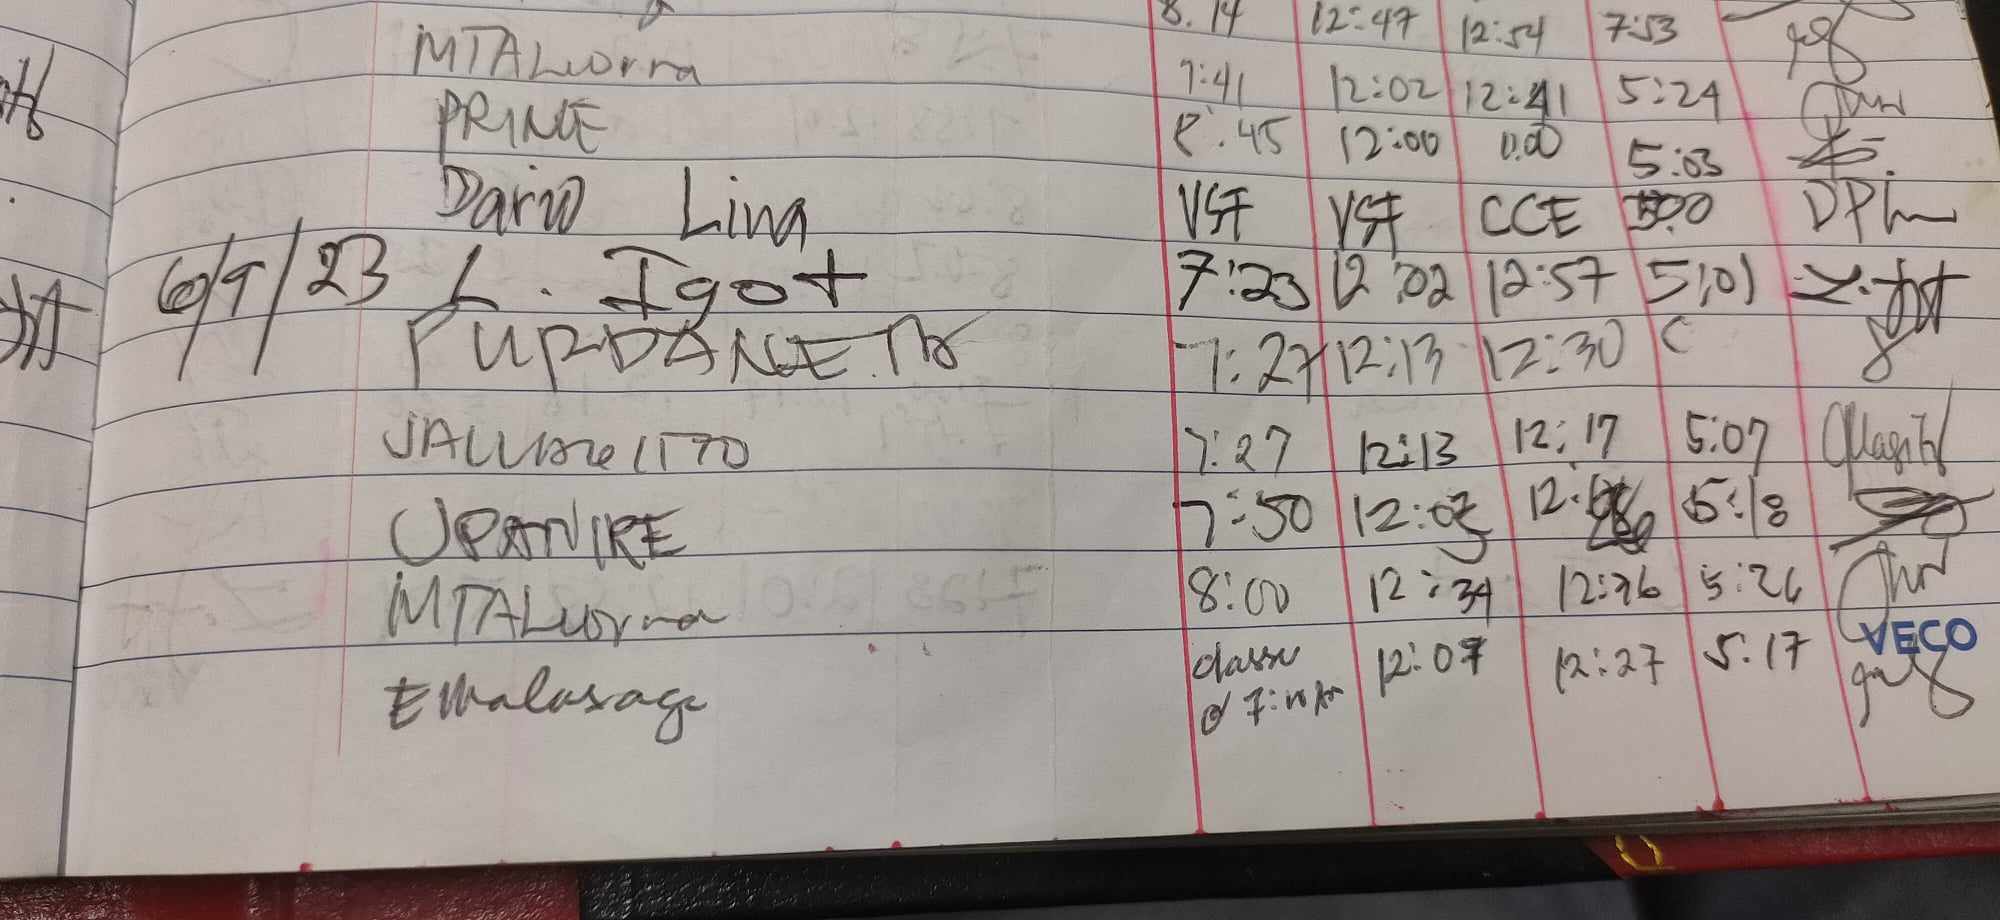 8.14 12:47 12:54 7:53
MTALworna 7:41 12:02 12:41 5:24
PRINE 8:45 12:00 1:00 5:03
Dario Lim VSF VSF CCE 5:00 DPL
6/9/23 L. Igot 7:23 12:02 12:57 5:01 L. Igot
PURDANE JR 7:27 12:13 12:30
7:27 12:13 12:17 5:07
UPANIRE 7:50 12:03 5:18
MTALworna 8:00 12:34 12:36 5:26
EMalasaga classe 12:07 12:27 5:17
VECO